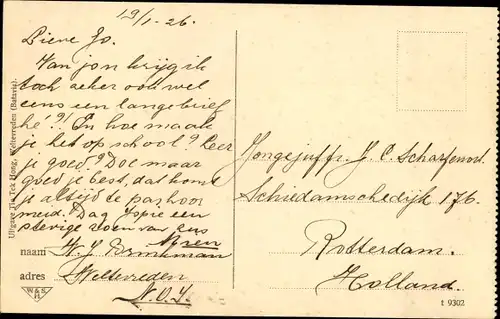 19/1-26.
Lieve Jo.
Van jou krijg ik
toch zeker ook wel
eens een langebrief
hé?! En hoe maak
je het op school? Leer
je goed? Doe maar
goed je best, dat komt
je altijd te pas hoor
meid. Dag Jopie een
stevige zoen van zus
naam W. J.
adres Weltevreden
N.O.I.
Jongejuffr. J. C. Scharfenort.
Schiedamschedijk 176.
Rotterdam.
Holland.
Uitgave Tio Tek Hong, Weltevreden (Batavia).
W&S
H
t 9302